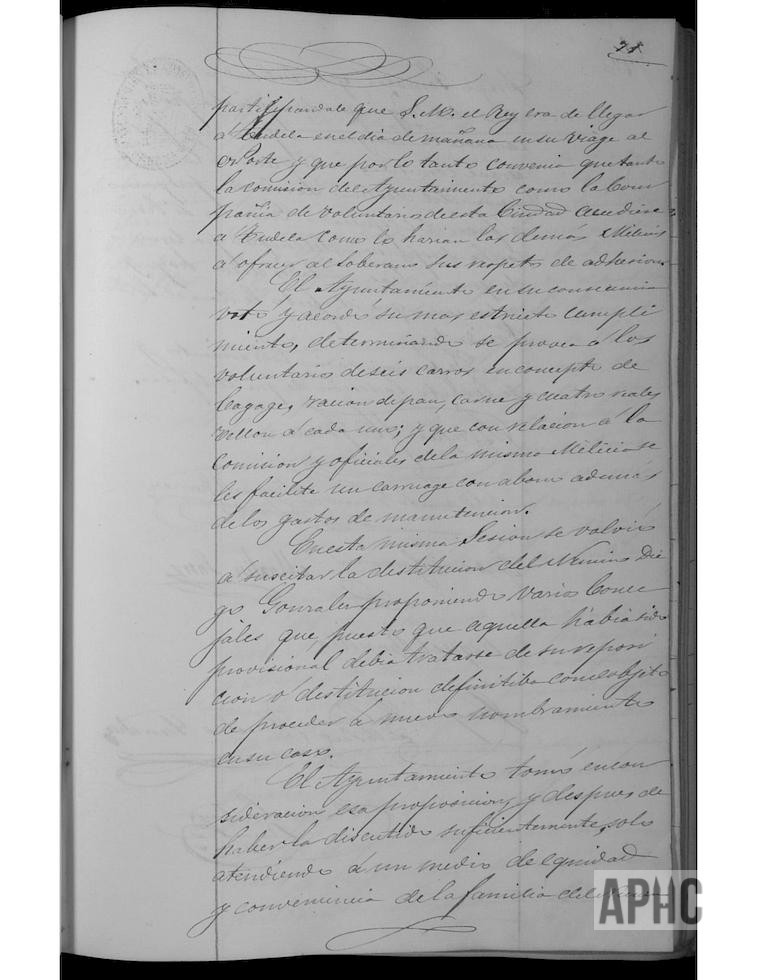 participandole que S. M. el Rey era de llegar
a Tudela en el dia de mañana en su viage al
Norte y que por lo tanto convenia que tanto
la comision del Ayuntamiento como la Com
pañia de voluntarios de esta Ciudad acudiese
a Tudela como lo harian las demas Milicias
a ofrecer al Soberano sus respetos de adhesion.
El Ayuntamiento en su consecuencia
votó y acordó su mas estricto cumpli
miento, determinando se provea a los
voluntarios de seis carros en concepto de
bagage, racion de pan, carne y cuatro reales
vellon á cada uno; y que con relacion á la
Comision y oficiales de la misma Milicia se
les facilite un carruage con abono ademas
de los gastos de manutencion.
En esta misma Sesion se volvió
a suscitar la destitucion del Die
go Gonzalez proponiendo varios Conce
jales que, puesto que aquella habia sido
provisional debia tratarse de su reposi
cion o destitucion definitiba con el objeto
de proceder á nuevo nombramiento
en su caso.
El Ayuntamiento tomó en con
sideracion esa proposicion, y despues de
haberla discutido suficientemente, solo
atendiendo á un medio de equidad
y conveniencia de la familia del
APHC